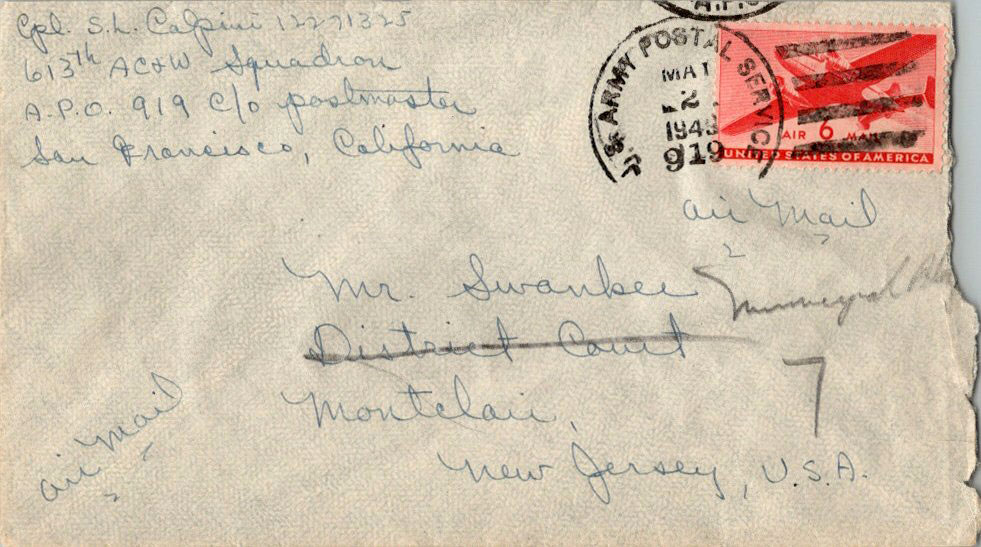 Cpl. S.L. Calpini 12271325
613th AC&W Squadron
A.P.O. 919 C/o postmaster
San Francisco, California
A.P.O.
U.S. ARMY POSTAL SERVICE
2
194
919
AIR 6 MAIL
UNITED STATES OF AMERICA
air Mail
Mr. Swankee
District Court
7
Montclair,
New Jersey, U.S.A.
air Mail